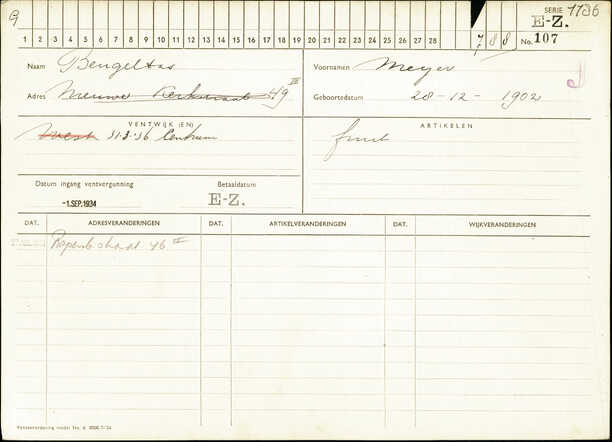 G
SERIE 1736
E-Z.
1 2 3 4 5 6 7 8 9 10 11 12 13 14 15 16 17 18 19 20 21 22 23 24 25 26 27 28
7 8 8
No. 107
Naam Bengeltas
Voornamen Meyer
Adres Nieuwe Kerkstraat 49 III
Geboortedatum 28-12-1902
VENTWIJK (EN)
ARTIKELEN
West 31-3-'36 Centrum
fruit
Datum ingang ventvergunning
Betaaldatum
-1.SEP.1934
E-Z.
DAT. ADRESVERANDERINGEN DAT. ARTIKELVERANDERINGEN DAT. WIJKVERANDERINGEN
Rapenb.straat 46 II
Ventverordening model